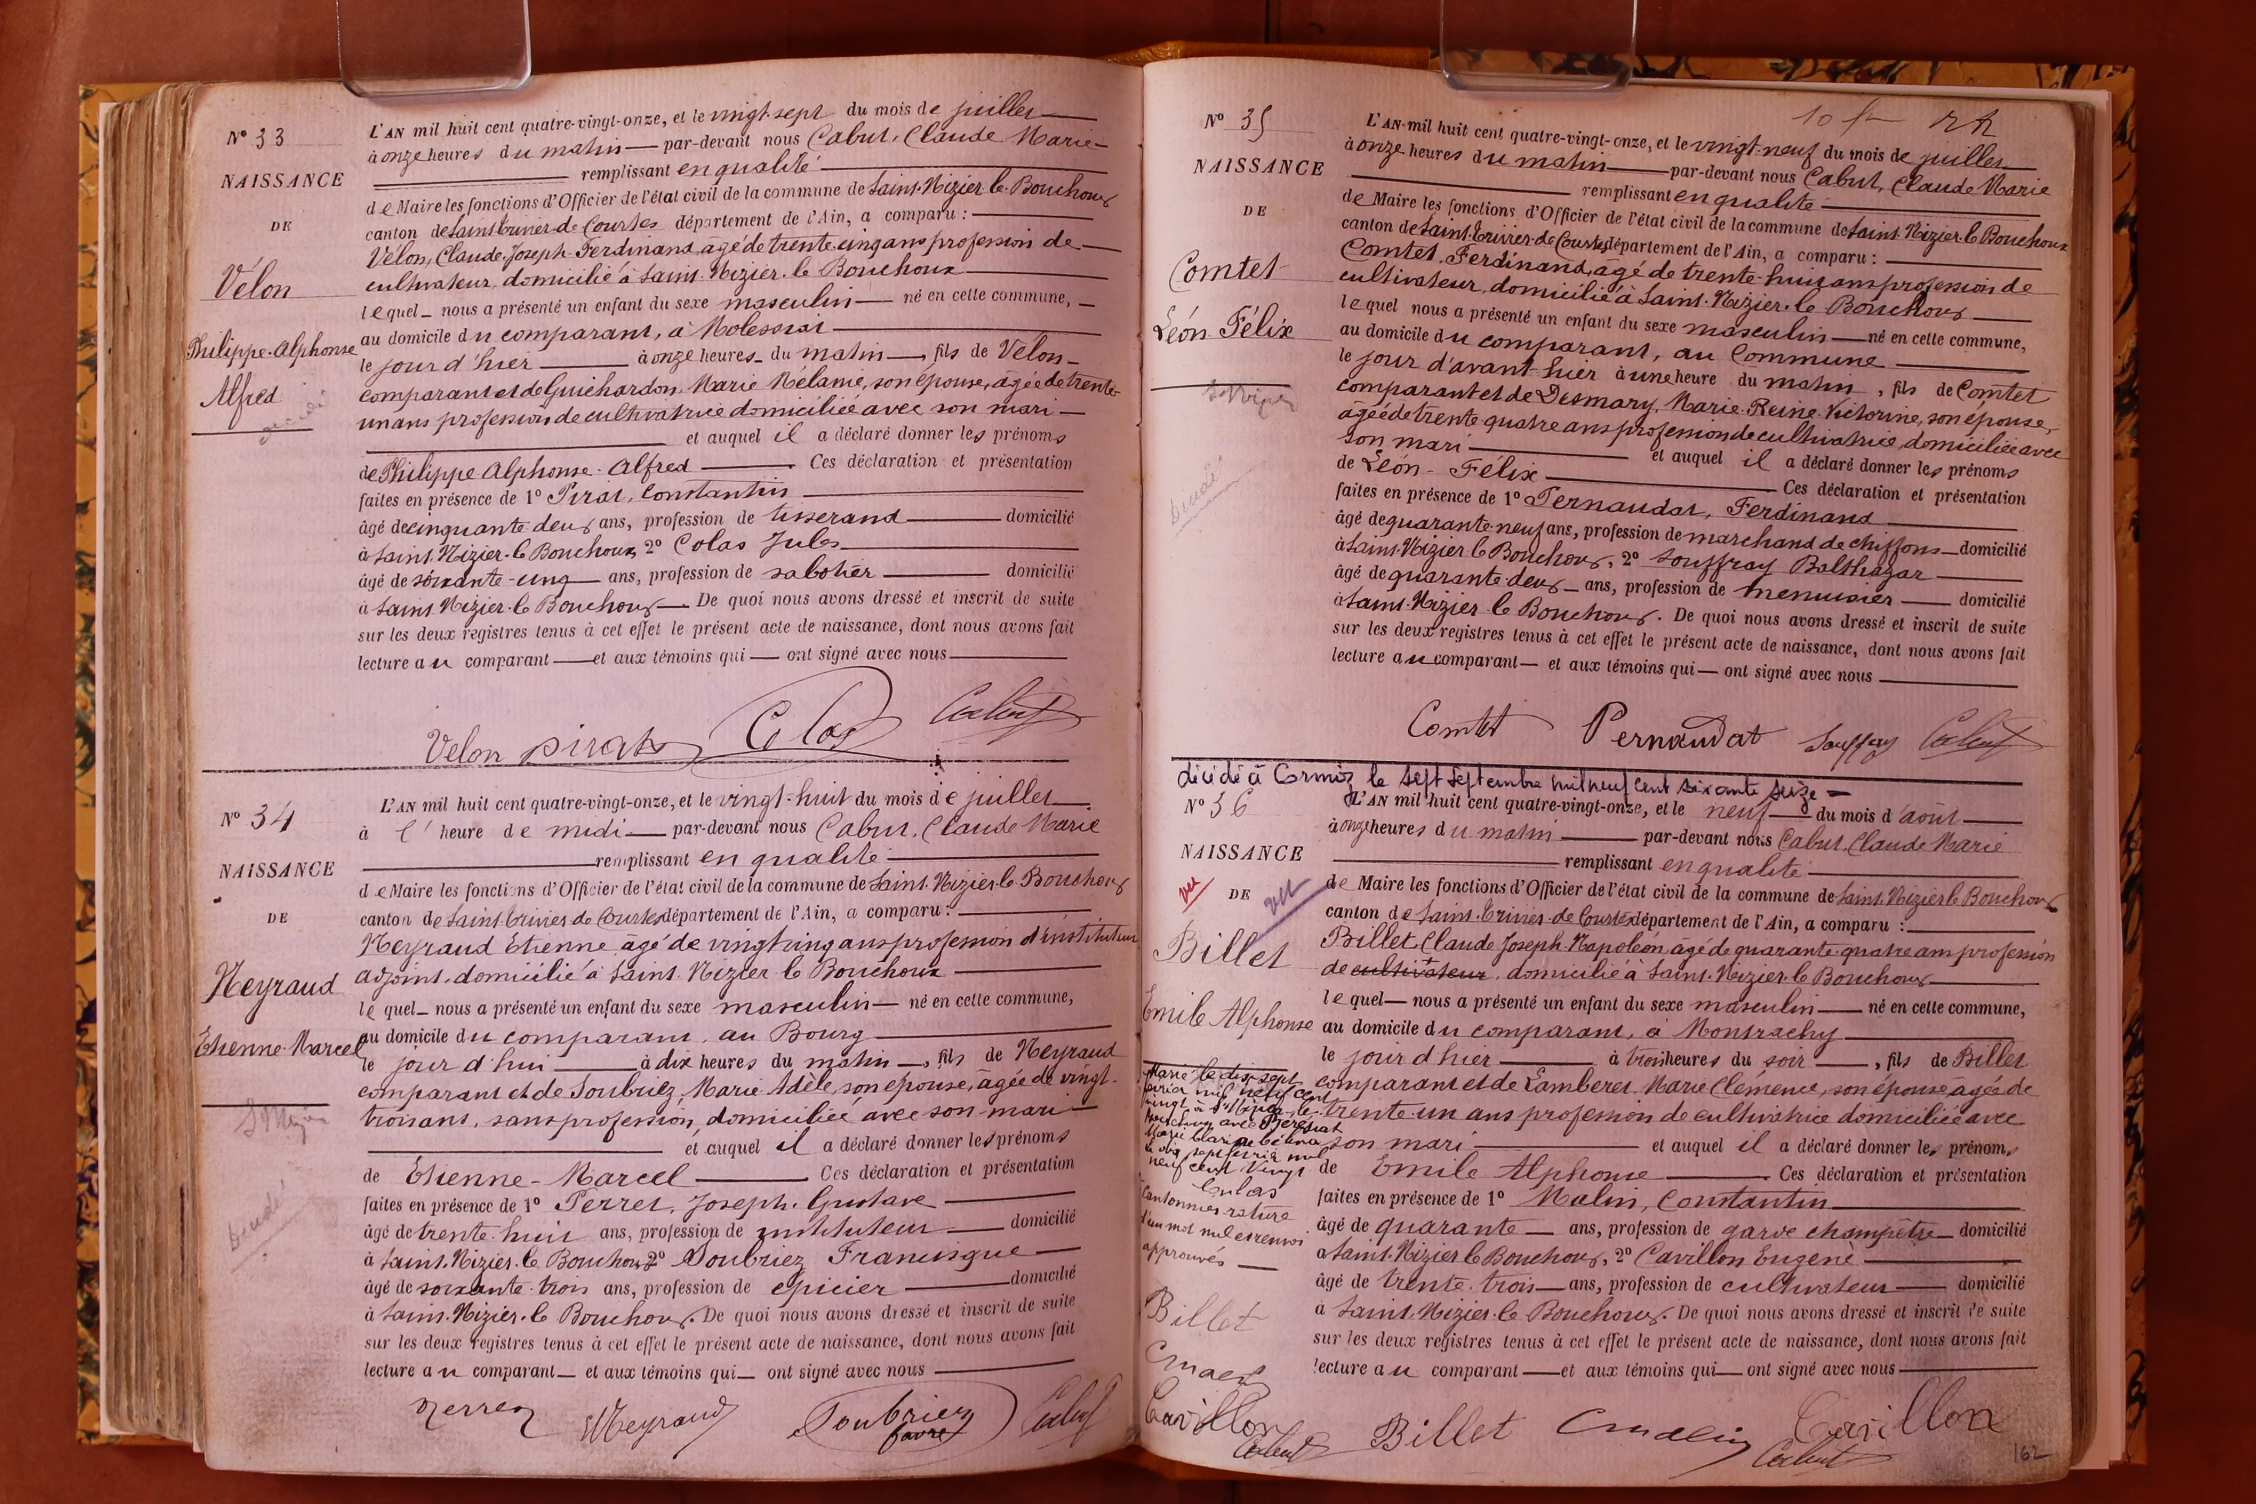 N° 33
NAISSANCE
DE
Vélon
Philippe-Alphonse
Alfred
L'AN mil huit cent quatre-vingt-onze, et le vingt-sept du mois de juillet
à onze heures du matin par-devant nous Cabut, Claude Marie
remplissant en qualité
de Maire les fonctions d'Officier de l'état civil de la commune de Saint-Nizier-le-Bouchoux
canton de Saint-Trivier-de-Courtes département de l'Ain, a comparu :
Vélon, Claude-Joseph-Ferdinand, âgé de trente-cinq ans profession de
cultivateur, domicilié à Saint-Nizier-le-Bouchoux
lequel nous a présenté un enfant du sexe masculin né en cette commune,
au domicile du comparant, à Molessiat
le jour d'hier à onze heures du matin, fils de Vélon
comparant et de Guichardon, Marie Mélanie, son épouse, âgée de trente-
un ans profession de cultivatrice domiciliée avec son mari
et auquel il a déclaré donner les prénoms
de Philippe Alphonse-Alfred Ces déclaration et présentation
faites en présence de 1° Pirat, Constantin
âgé de cinquante-deux ans, profession de tisserand domicilié
à Saint-Nizier-le-Bouchoux 2° Colas Jules
âgé de soixante-cinq ans, profession de sabotier domicilié
à Saint-Nizier-le-Bouchoux De quoi nous avons dressé et inscrit de suite
sur les deux registres tenus à cet effet le présent acte de naissance, dont nous avons fait
lecture au comparant et aux témoins qui ont signé avec nous
Velon Pirat Colas Cabut
N° 34
NAISSANCE
DE
Meyraud
Etienne-Marcel
St Nizier
Décédé
L'AN mil huit cent quatre-vingt-onze, et le vingt-huit du mois de juillet
à l'heure de midi par-devant nous Cabut, Claude Marie
remplissant en qualité
de Maire les fonctions d'Officier de l'état civil de la commune de Saint-Nizier-le-Bouchoux
canton de Saint-Trivier-de-Courtes département de l'Ain, a comparu :
Meyraud Etienne âgé de vingt-cinq ans profession d'instituteur
adjoint, domicilié à Saint-Nizier-le-Bouchoux
lequel nous a présenté un enfant du sexe masculin né en cette commune,
au domicile du comparant, au Bourg
le jour d'hui à dix heures du matin, fils de Meyraud
comparant et de Soubriez, Marie Adèle, son épouse, âgée de vingt-
trois ans, sans profession, domiciliée avec son mari
et auquel il a déclaré donner les prénoms
de Etienne-Marcel Ces déclaration et présentation
faites en présence de 1° Perret, Joseph-Gustave
âgé de trente-huit ans, profession de instituteur domicilié
à Saint-Nizier-le-Bouchoux 2° Soubriez Francisque
âgé de soixante-trois ans, profession de épicier domicilié
à Saint-Nizier-le-Bouchoux. De quoi nous avons dressé et inscrit de suite
sur les deux registres tenus à cet effet le présent acte de naissance, dont nous avons fait
lecture au comparant et aux témoins qui ont signé avec nous
Perret Meyraud Soubriez Favre Cabut
N° 35
NAISSANCE
DE
Comtet
Léon-Félix
St Nizier
Décédé
L'AN mil huit cent quatre-vingt-onze, et le vingt-neuf du mois de juillet
à onze heures du matin par-devant nous Cabut, Claude Marie
remplissant en qualité
de Maire les fonctions d'Officier de l'état civil de la commune de Saint-Nizier-le-Bouchoux
canton de Saint-Trivier-de-Courtes département de l'Ain, a comparu :
Comtet, Ferdinand, âgé de trente-huit ans profession de
cultivateur, domicilié à Saint-Nizier-le-Bouchoux
lequel nous a présenté un enfant du sexe masculin né en cette commune,
au domicile du comparant, au Commune
le jour d'avant-hier à une heure du matin, fils de Comtet
comparant et de Desmary, Marie-Reine-Victorine, son épouse,
âgée de trente quatre ans profession de cultivatrice, domiciliée avec
son mari et auquel il a déclaré donner les prénoms
de Léon-Félix Ces déclaration et présentation
faites en présence de 1° Pernaudat, Ferdinand
âgé de quarante-neuf ans, profession de marchand de chiffons domicilié
à Saint-Nizier-le-Bouchoux, 2° Souffray Balthazar
âgé de quarante-deux ans, profession de menuisier domicilié
à Saint-Nizier-le-Bouchoux. De quoi nous avons dressé et inscrit de suite
sur les deux registres tenus à cet effet le présent acte de naissance, dont nous avons fait
lecture au comparant et aux témoins qui ont signé avec nous
Comtet Pernaudat Souffray Cabut
décédé à Cormoz le sept septembre mil neuf cent soixante seize
N° 36
NAISSANCE
DE
vu vu
Billet
Emile Alphonse
Marié le dix-sept
février mil neuf cent
vingt à St Nizier-le-
Bouchoux avec Pereyat
Marie
le dix sept février mil
neuf cent vingt
Colas
Cantonnier rature
d'un mot nul et renvoi
approuvés
Billet
Cmalin
Cavillon
Cabut
L'AN mil huit cent quatre-vingt-onze, et le neuf du mois d'août
à onze heures du matin par-devant nous Cabut, Claude Marie
remplissant en qualité
de Maire les fonctions d'Officier de l'état civil de la commune de Saint-Nizier-le-Bouchoux
canton de Saint-Trivier-de-Courtes département de l'Ain, a comparu :
Billet, Claude Joseph-Napoléon âgé de quarante-quatre ans profession
de cultivateur, domicilié à Saint-Nizier-le-Bouchoux
lequel nous a présenté un enfant du sexe masculin né en cette commune,
au domicile du comparant, à Montrachy
le jour d'hier à trois heures du soir, fils de Billet
comparant et de Lamberet Marie Clémence, son épouse, âgée de
trente-un ans profession de cultivatrice domiciliée avec
son mari et auquel il a déclaré donner les prénoms
de Emile Alphonse Ces déclaration et présentation
faites en présence de 1° Malin, Constantin
âgé de quarante ans, profession de garde champêtre domicilié
à Saint-Nizier-le-Bouchoux, 2° Cavillon Eugène
âgé de trente-trois ans, profession de cultivateur domicilié
à Saint-Nizier-le-Bouchoux. De quoi nous avons dressé et inscrit de suite
sur les deux registres tenus à cet effet le présent acte de naissance, dont nous avons fait
lecture au comparant et aux témoins qui ont signé avec nous
Billet Cmalin Cavillon
Cabut
162